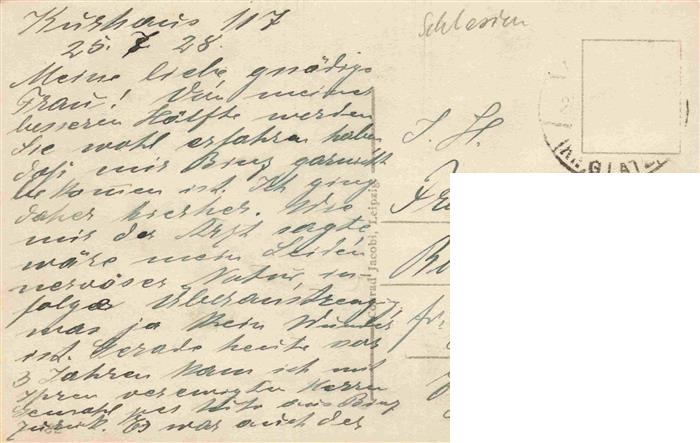 Kurhaus 117
25. 7 28.
Meine liebe gnädige
Frau! Von meiner
besseren Hälfte werden
Sie wohl erfahren haben
daß mir Binz garnicht
bekommen ist. Ich ging
daher hierher. Wie
mir der Arzt sagte
wäre mein Leiden
nervöser Natur, in-
folge Überanstreng.
was ja kein Wunder
ist. Gerade heute vor
3 Jahren kam ich mit
Ihrem verewigten Herrn
Gemahl per Auto aus Binz
zurück. Es war auch der
Schlesien
GLATZ
Conrad Jacobi, Leipzig
I. H.